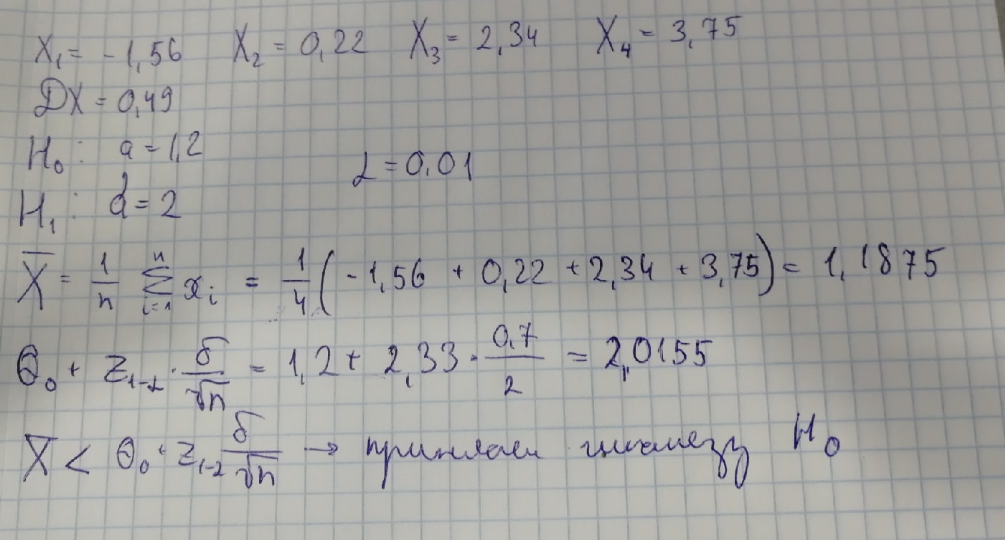 X₁ = -1,56 X₂ = 0,22 X₃ = 2,34 X₄ = 3,75
DX = 0,49
H₀: a = 1,2
α = 0,01
H₁: a = 2
X̅ = 1/n ∑ᵢ₌₁ⁿ xᵢ = 1/4 (-1,56 + 0,22 + 2,34 + 3,75) = 1,1875
θ₀ + z₁₋α · σ/√n = 1,2 + 2,33 · 0,7/2 = 2,0155
X̅ < θ₀ + z₁₋α σ/√n → принимаем гипотезу H₀